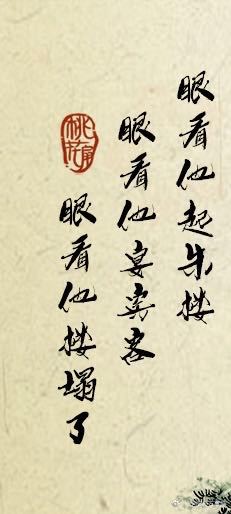 眼看他起朱楼
眼看他宴宾客
眼看他楼塌了
桃花扇